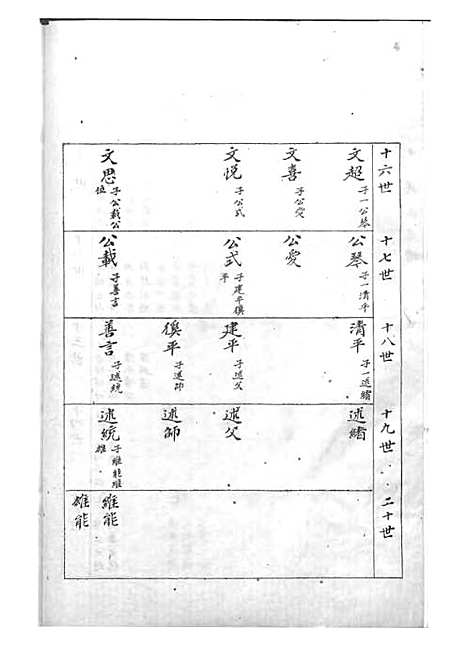 十六世
文超 子一公琴
文喜 子公愛
文悅 子公式
文思 子公載公
位
十七世
公琴 子一清平
公愛
公式 子建平僕
平
公載 子善言
十八世
清平 子一述緒
建平 子述父
僕平 子述師
善言 子述統
十九世
述緒
述父
述師
述統
二十世
維能
雄能